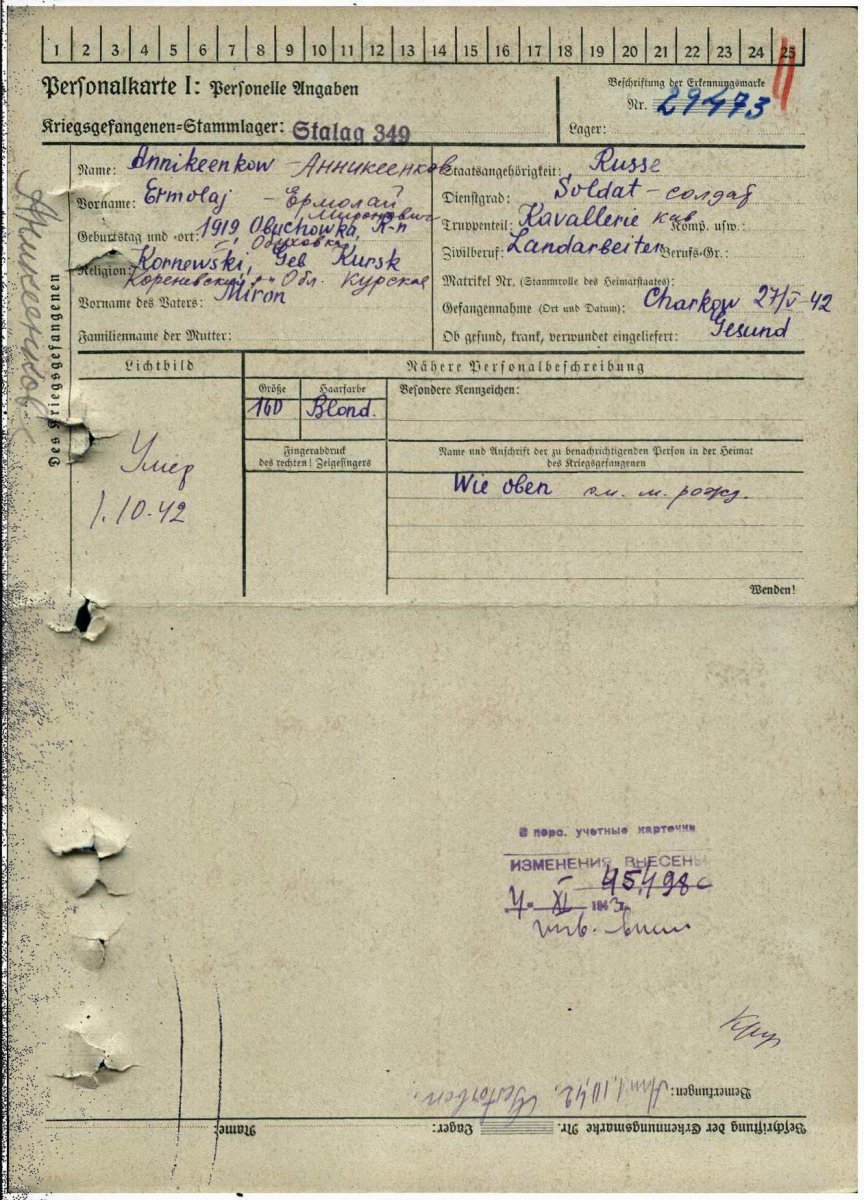 1 2 3 4 5 6 7 8 9 10 11 12 13 14 15 16 17 18 19 20 21 22 23 24 25
Personalkarte I: Personelle Angaben
Beschriftung der Erkennungsmarke
Nr. 29473
Kriegsgefangenen-Stammlager: Stalag 349
Lager:
Des Kriegsgefangenen
Name: Annikeenkow - Анникеенков
Vorname: Ermolaj - Ермолай
Миронович
Geburtstag und -ort: 1919, Obuchowka, R-n
Обуховка
Religion: Kornewski, Geb Kursk
Кореневский Обл. Курская
Vorname des Vaters: Miron
Familienname der Mutter:
Staatsangehörigkeit: Russe
Dienstgrad: Soldat - солдат
Truppenteil: Kavallerie кав Komp. usw.:
Zivilberuf: Landarbeiter Berufs-Gr.:
Matrikel Nr. (Stammrolle des Heimatstaates):
Gefangennahme (Ort und Datum): Charkow 27/V-42
Ob gesund, krank, verwundet eingeliefert: Gesund
Lichtbild
Умер
1.10.42
Nähere Personalbeschreibung
Größe Haarfarbe Besondere Kennzeichen:
160 Blond.
Fingerabdruck
des rechten! Zeigefingers
Name und Anschrift der zu benachrichtigenden Person in der Heimat
des Kriegsgefangenen
Wie oben см. м. рожд.
Wenden!
В перс. учетные карточки
ИЗМЕНЕНИЯ ВНЕСЕНЫ
Bemerkungen: Am 1.10.42. Gestorben.
Beschriftung der Erkennungsmarke Nr. Lager: Name: